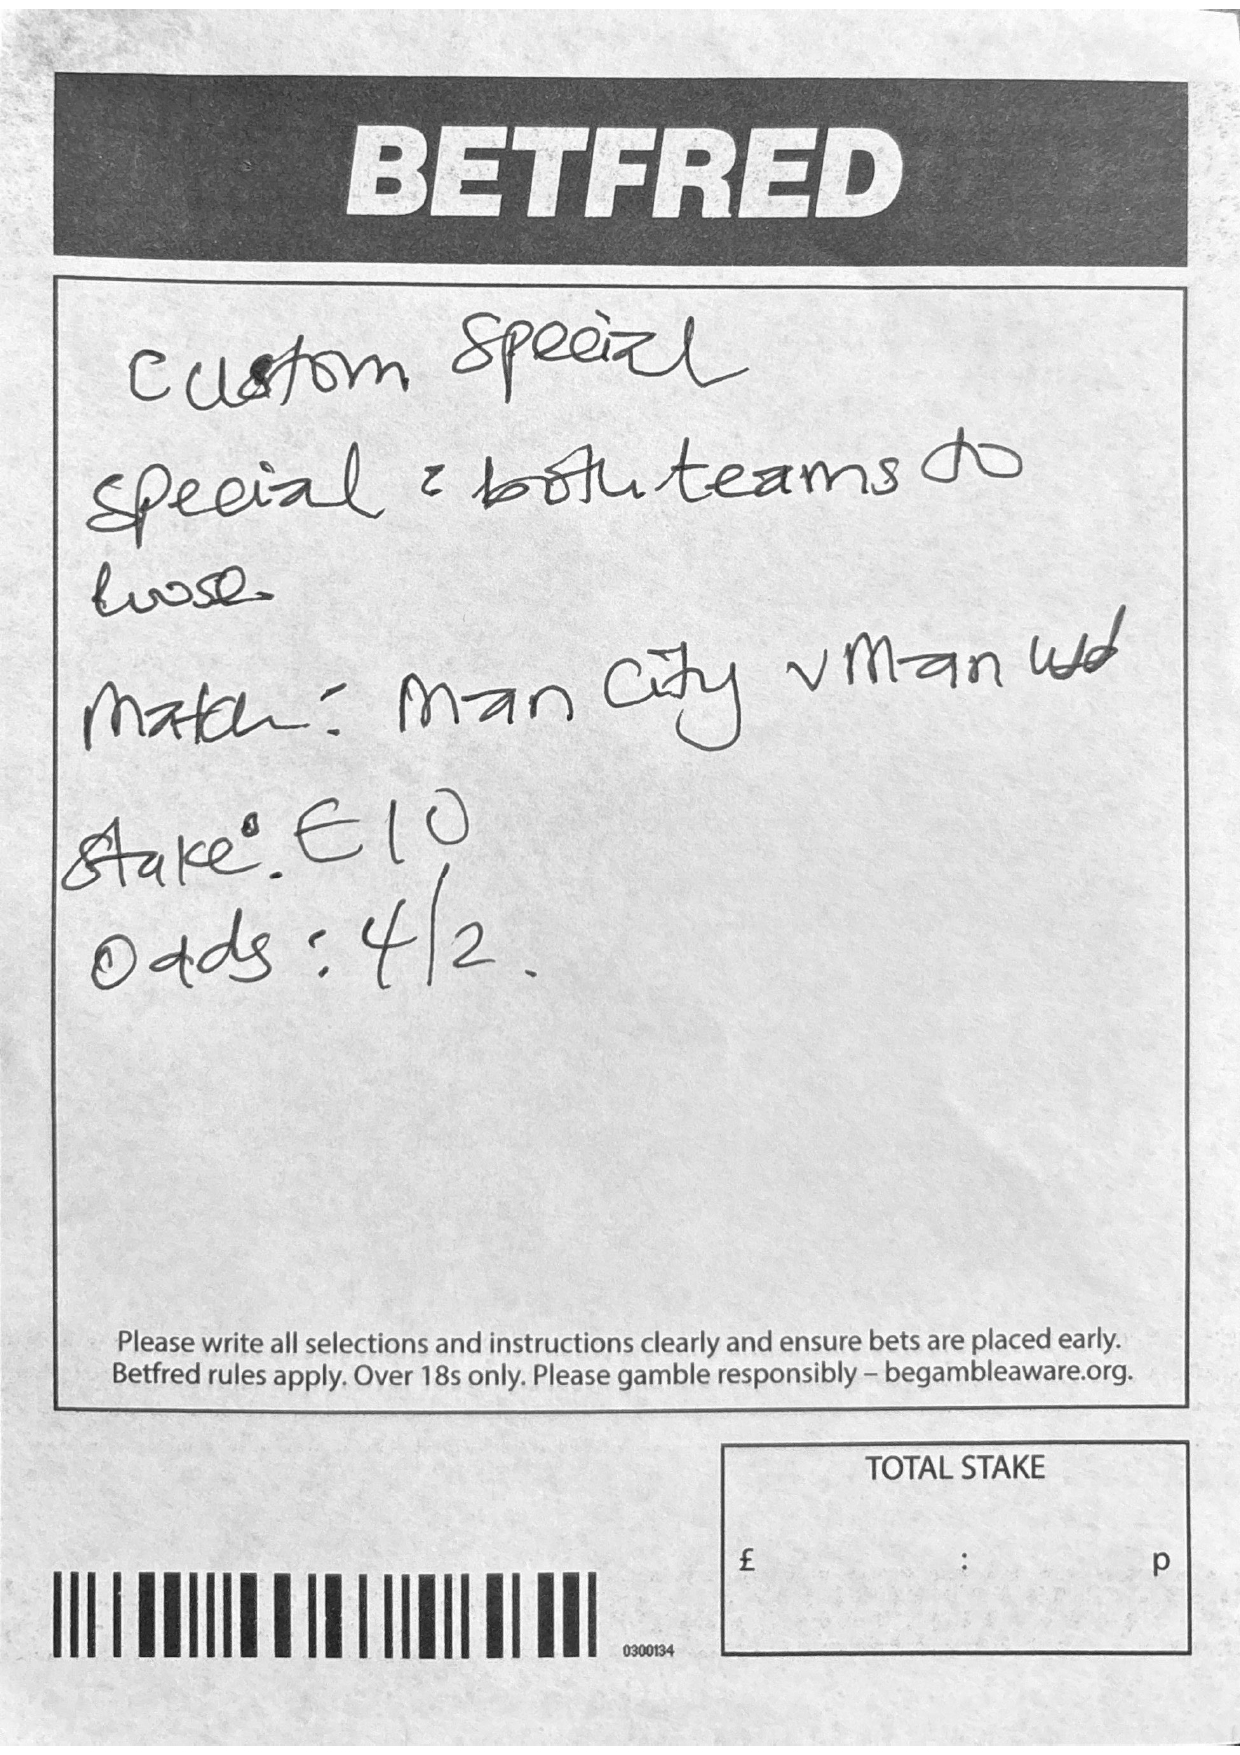 BETFRED
Custom Special
Special : both teams to
loose.
Match : Man City v Man Utd
Stake : £10
Odds : 4/2.
Please write all selections and instructions clearly and ensure bets are placed early.
Betfred rules apply. Over 18s only. Please gamble responsibly – begambleaware.org.
TOTAL STAKE
£ : p
0300134